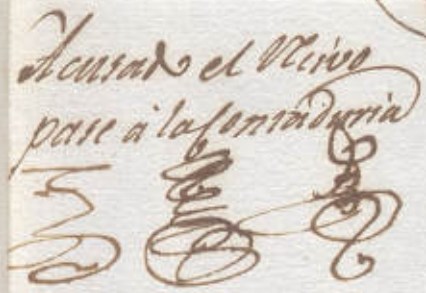 Acusado el Recivo
pase à la Contaduria